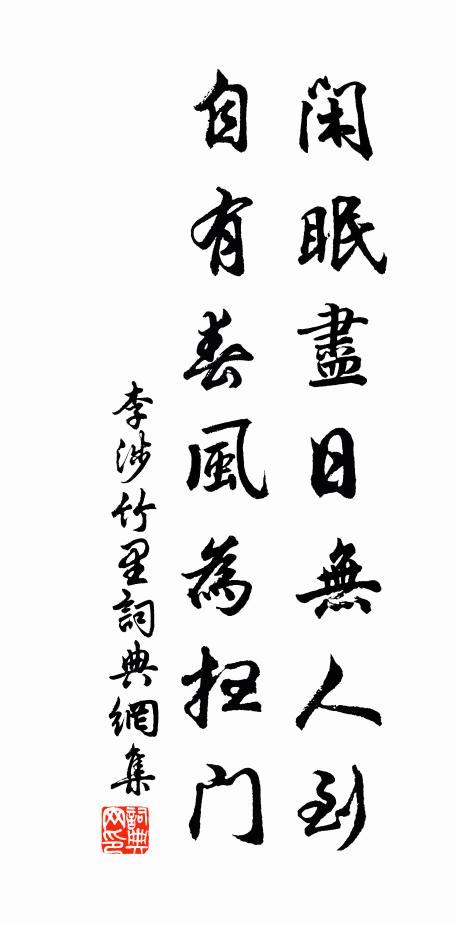 閑眠盡日無人到
自有春風為掃門
李涉竹里詞典網集
詞典网印